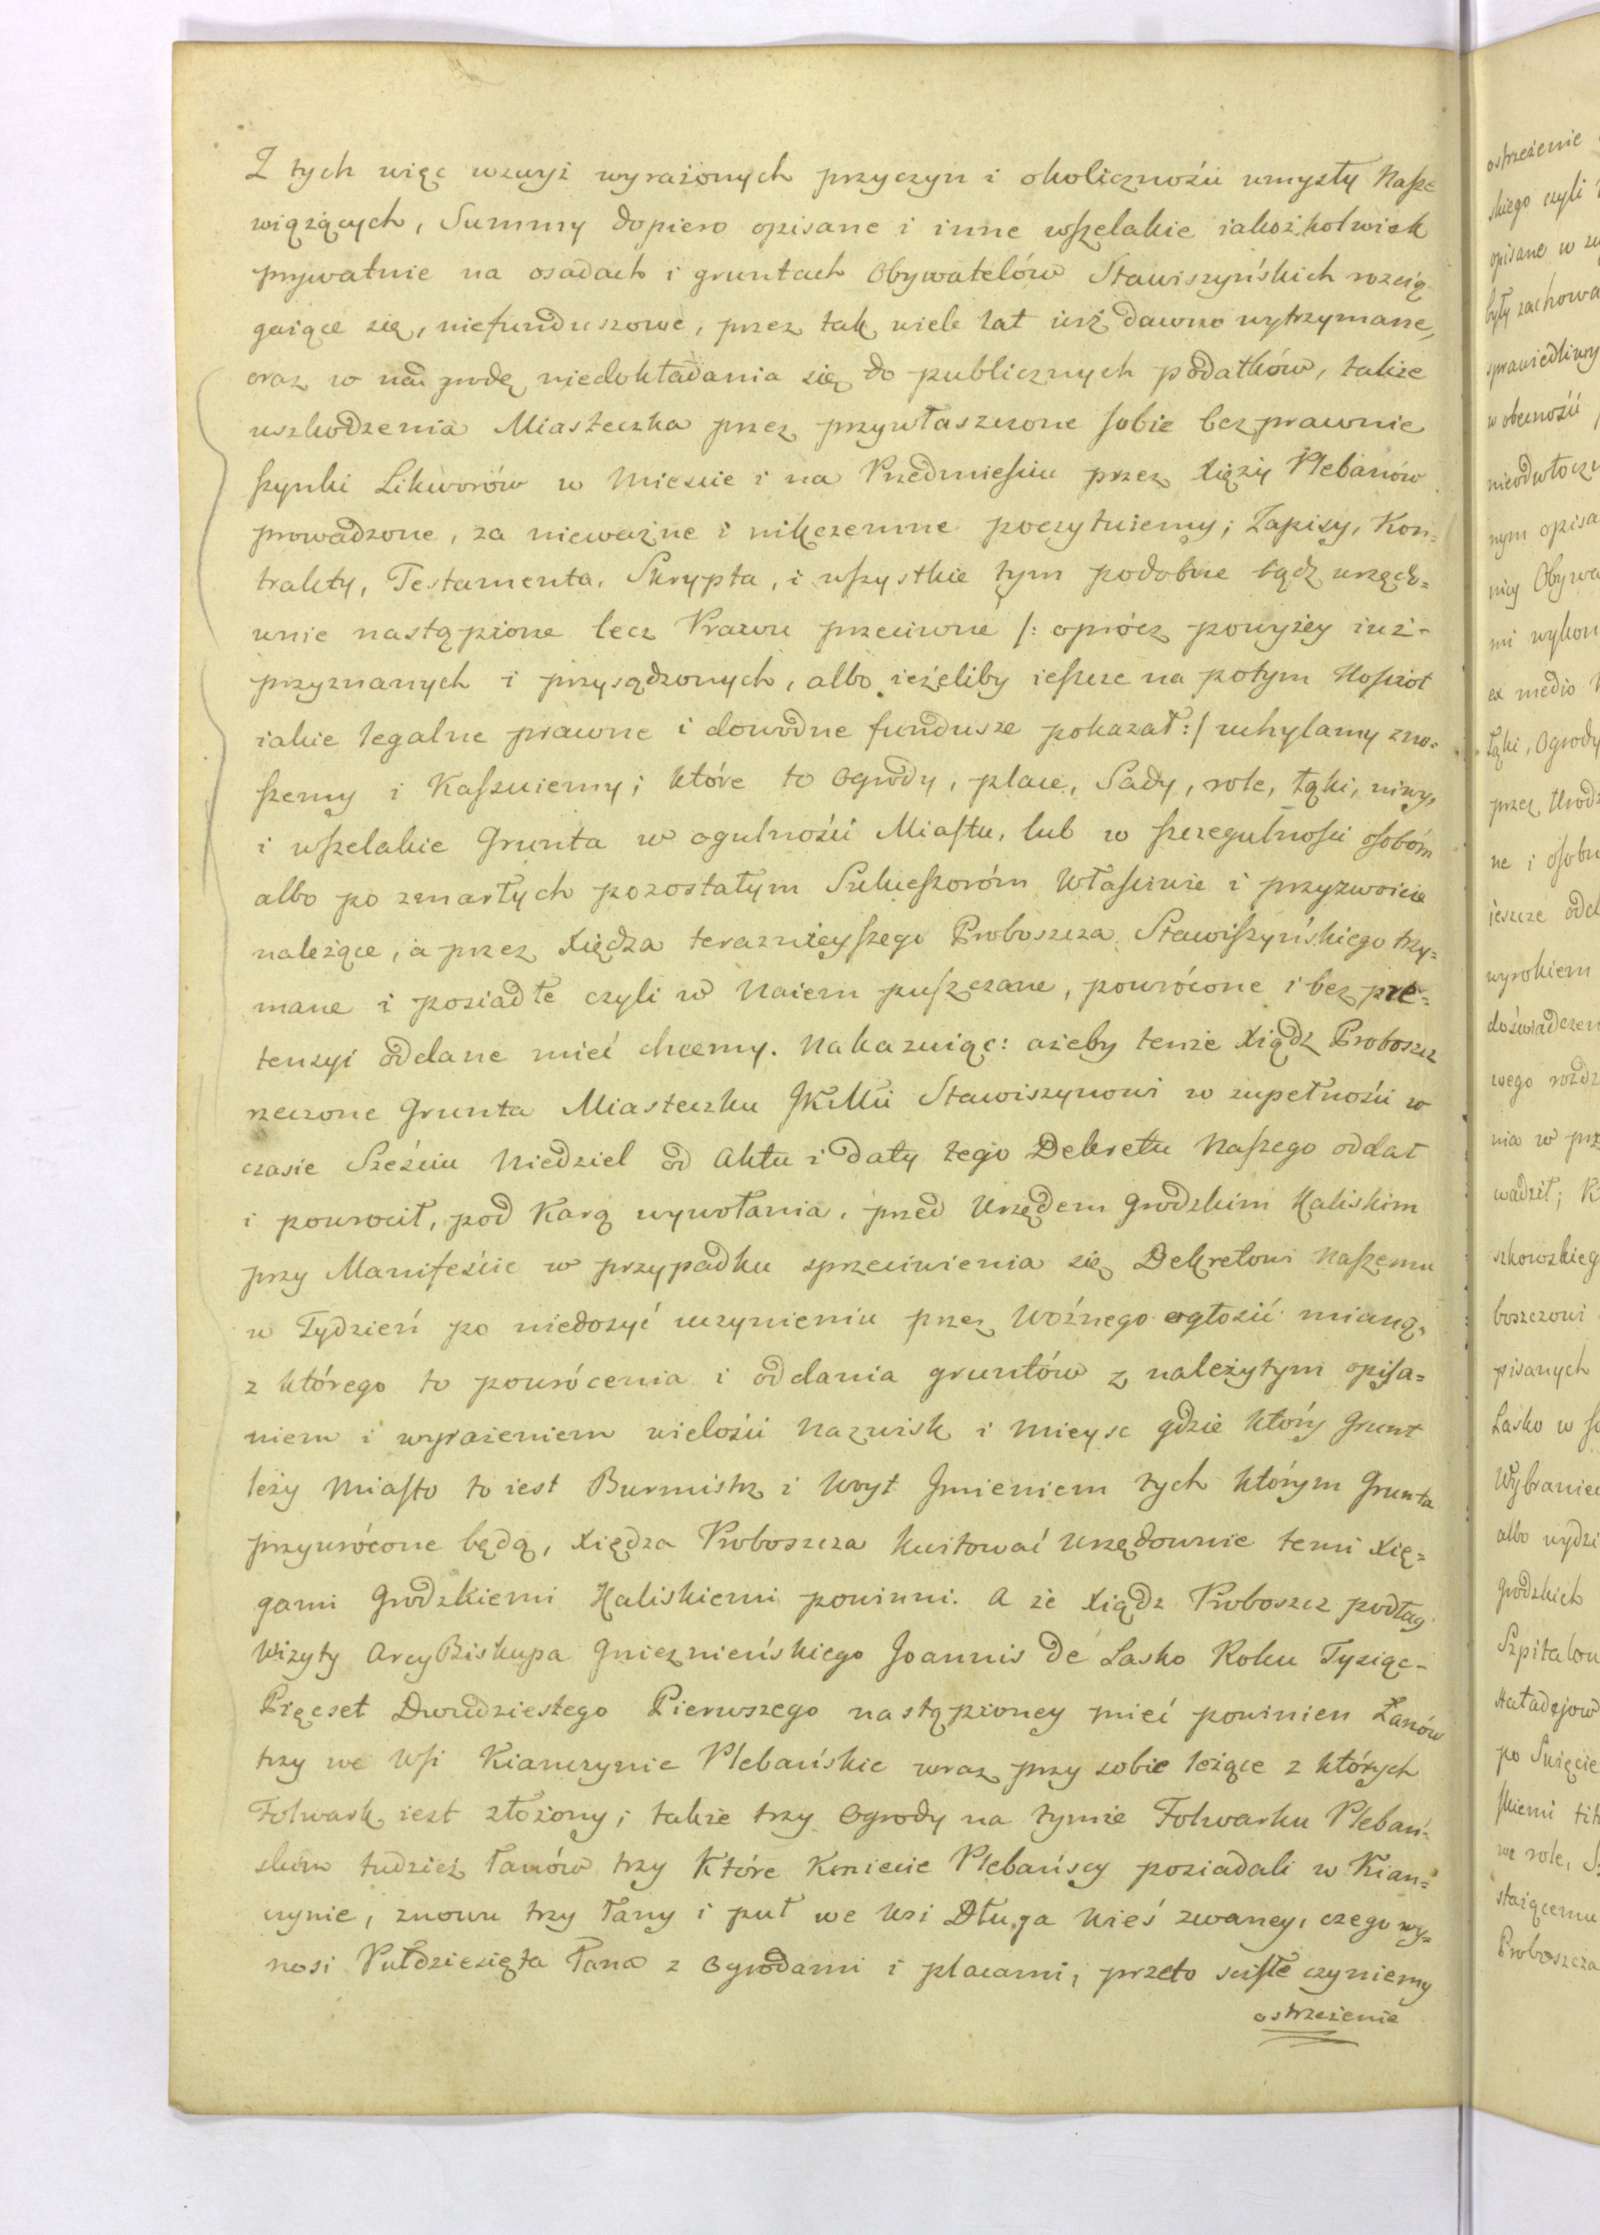 Z tych więc wzwyż wyrażonych przyczyn i okoliczności umysły Nasze
wiążących, Summy dopiero opisane i inne wszelakie iakożkolwiek
prywatnie na osadach i gruntach Obywatelów Stawiszyńskich rozcią
gaiące się, niefunduszowe, przez tak wiele lat iuż dawno wytrzymane,
oraz w nadgrodę niedokładania się do publicznych podatków, także
uszkodzenia Miasteczka przez przywłaszczone sobie bezprawnie
szynki Likworów w Mieście i na Przedmieściu przez Xięży Plebanów
prowadzone, za nieważne i nikczemne poczytuiemy; Zapisy, Kon=
trakty, Testamenta, Skrypta, i wszystkie tym podobne bądź urzęd=
ownie nastąpione lecz Prawu przeciwne /: oprócz powyżey iuż-
przyznanych i przysądzonych, albo ieżeliby ieszcze na potym Kościoł
iakie legalne prawne i dowodne fundusze pokazał :/ uchylamy zno=
szemy i Kassuiemy; które to Ogrody, place, Sady, role, łąki, niwy,
i wszelakie Grunta w ogulności Miastu, lub w szczegulności osobóm
albo po zmarłych pozostałym Sukcessoróm Właściwie i przyzwoicie
należące, a przez Xiędza teraznieyszego Proboszcza Stawiszyńskiego trzy=
mane i posiadłe czyli w Naiem puszczane, powrócone i bez pre=
tensyi oddane mieć chcemy. Nakazuiąc: ażeby tenże Xiądz Proboszcz
rzeczone Grunta Miasteczku JKMci Stawiszynowi w zupełności w
czasie Sześciu Niedziel od Aktu i daty tego Dekretu Naszego oddał
i powrocił, pod Karą wywołania, przed Urzędem Grodzkim Kaliskim
przy Manifeście w przypadku sprzeciwienia się Dekretowi Naszemu
w Tydzień po niedosyć uczynieniu przez Woźnego ogłosić mianą,
z którego to powrócenia i oddania gruntów z należytym opisa=
niem i wyrażeniem wielości Nazwisk i Mieysc gdzie który Grunt
leży Miasto to iest Burmistrz i Woyt Imieniem tych którym Grunta
przywrócone będą, Xiędza Proboszcza kwitować Urzędownie temi Xię=
gami Grodzkiemi Kaliskiemi powinni. A że Xiądz Proboszcz podług
Wizyty ArcyBiskupa Gnieznieńskiego Joannis De Lasko Roku Tysiąc-
Pięcset Dwudziestego Pierwszego nastąpioney mieć powinien Łanów
trzy we Wsi Kiączynie Plebańskie wraz przy sobie leżące z których
Folwark iest złożony; także trzy Ogrody na tymże Folwarku Plebań-
skim tudzież Łanów trzy Które Kmiecie Plebańscy posiadali w Kian=
czynie, znowu trzy łany i puł we Wsi Długa Wieś zwaney, czego wy=
nosi Pułdziesięta Łana z Ogrodami i placami, przeto scisłe czyniemy
ostrzeżenie
ostrzeżenie
skiego czyli
opisane w
były zachowa
sprawiedliwy
w obecności
nieodwłoczn
nym opisa
nicy Obywa
mi wykon
ex medio
Łąki, Ogrody
przez Urodz
ne i osobn
ieszcze odd
wyrokiem
doświadczen
wego rozdz
nia w prz
wadził; K
szkowskieg
boszczowi
pisanych
Lasko w
Wybraniec
albo wydzi
Grodzkich
Szpitalow
po Święcie
we role,
staiącemu
Proboszcza